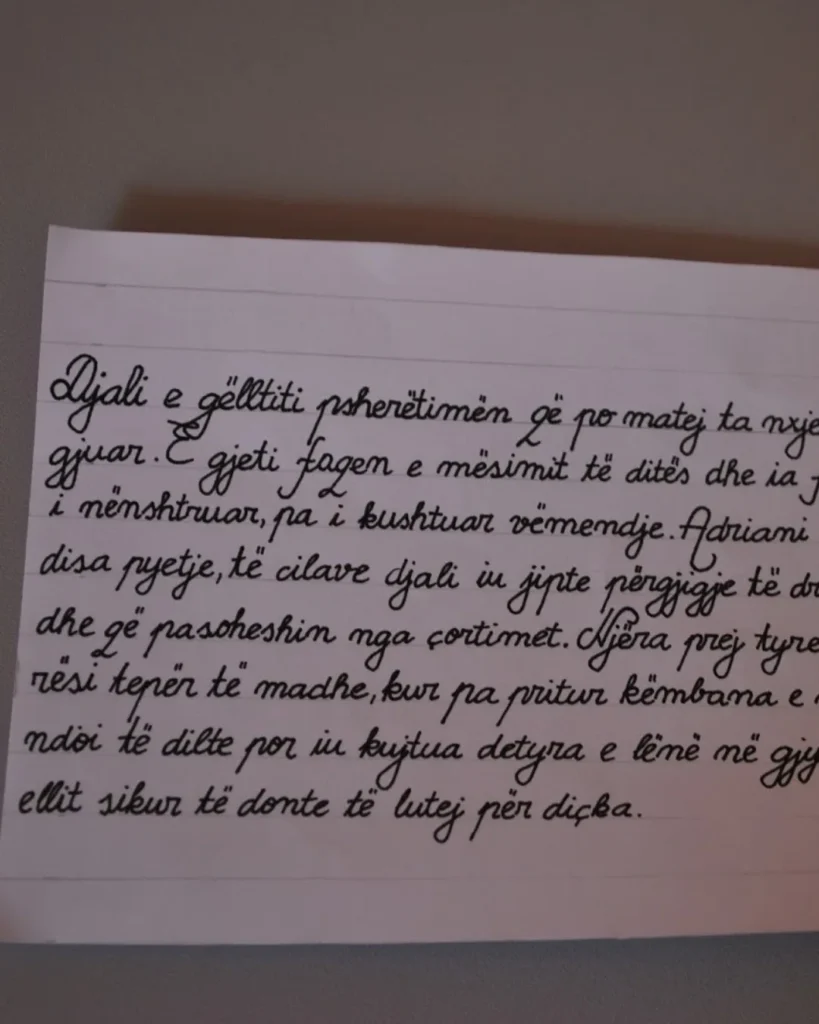 Djali e gëlltiti psherëtimën që po matej ta
gjuar. E gjeti faqen e mësimit të ditës dhe ia
i nënshtruar, pa i kushtuar vëmendje. Adriani
disa pyetje, të cilave djali iu jipte përgjigje të
dhe që pasoheshin nga çortimet. Njëra prej tyre
rësi tepër të madhe, kur pa pritur këmbana e
ndoi të dilte por iu kujtua detyra e lënë në
ellit sikur të donte të lutej për diçka.